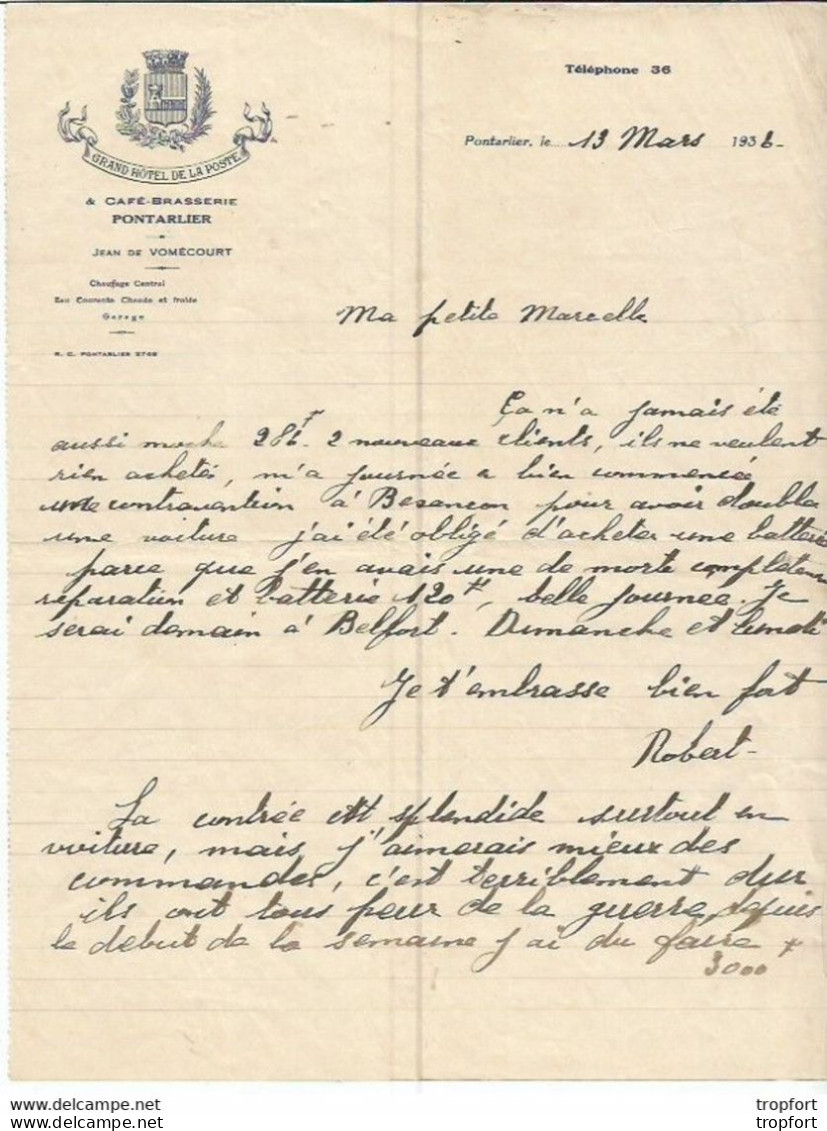 GRAND HÔTEL DE LA POSTE
& CAFÉ-BRASSERIE
PONTARLIER
JEAN DE VOMÉCOURT
Chauffage Central
Eau Courante Chaude et froide
Garage
R. C. PONTARLIER 2742
Téléphone 36
Pontarlier, le 13 Mars 1936-
Ma petite Marcelle
Ça n'a jamais été
aussi moche 286F. 2 nouveaux clients, ils ne veulent
rien achetés, m'a journée a bien commencée
une contravention à Besancon pour avoir doublé
une voiture j'ai été obligé d'acheter une batterie
parce que j'en avais une de morte
réparation et batterie 120F, belle journée. Je
serai demain à Belfort. Dimanche et lundi
Je t'embrasse bien fort
Robert-
La contrée est splendide surtout en
voiture, mais j'aimerais mieux des
commandes, c'est terriblement dur
ils ont tous peur de la guerre, depuis
le debut de la semaine j'ai du faire
3000F
tropfort
tropfort
tropfort
tropfort